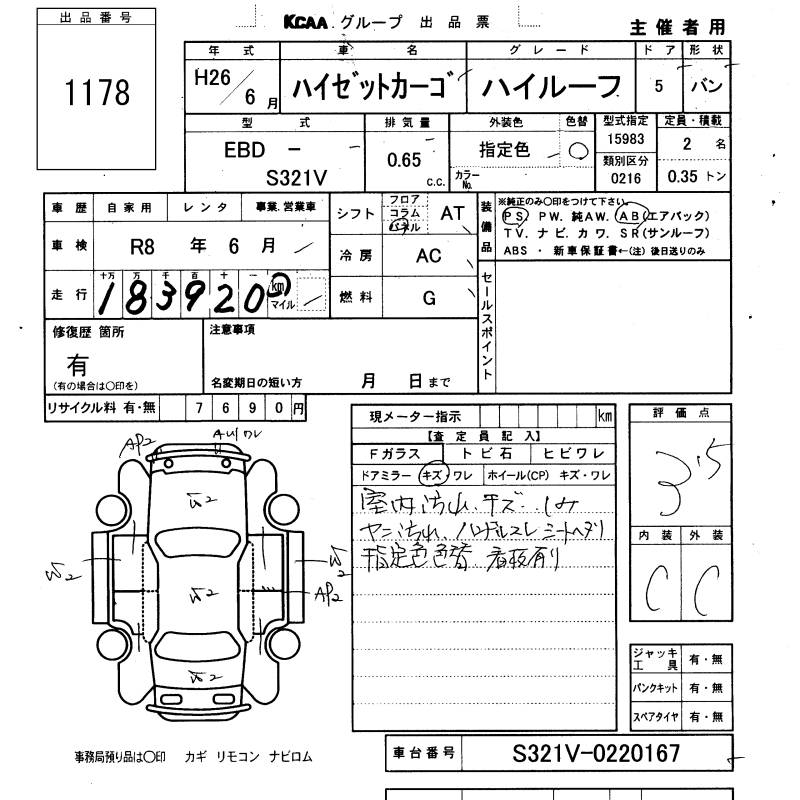 出品番号
1178
KCAA グループ 出品票
主催者用
年式 車名 グレード ドア 形状
H26/6月 ハイゼットカーゴ ハイルーフ 5 バン
型式 排気量 外装色 色替 型式指定 定員・積載
EBD - S321V 0.65 c.c. 指定色 ○ カラーNo. 15983 2名
類別区分
0216 0.35トン
車歴 自家用 レンタ 事業.営業車
シフト フロア コラム パネル AT
装備品
※純正のみ○印をつけて下さい。
PS PW. 純AW. AB(エアバック)
TV. ナビ. カワ. SR(サンルーフ)
ABS ・ 新車保証書←(注)後日送りのみ
車検 R8年6月
冷房 AC
走行 十万 万 千 百 十 一
183920 km マイル
燃料 G
セールスポイント
修復歴 箇所
有
(有の場合は○印を)
注意事項
名変期日の短い方 月 日まで
リサイクル料 有・無 7690円
現メーター指示 km
【査定員記入】
Fガラス トビ石 ヒビワレ
ドアミラー キズ・ワレ ホイール(CP) キズ・ワレ
室内汚れ.キズ.シミ
ヤニ汚れ.ハンドルスレ シートヘタリ
指定色色替 看板有り
評価点
3.5
内装 外装
C C
AP2 AUワレ
W2
W2
W2
W2
AP2
W2
ジャッキ工具 有・無
パンクキット 有・無
スペアタイヤ 有・無
事務局預り品は○印 カギ リモコン ナビロム
車台番号 S321V-0220167